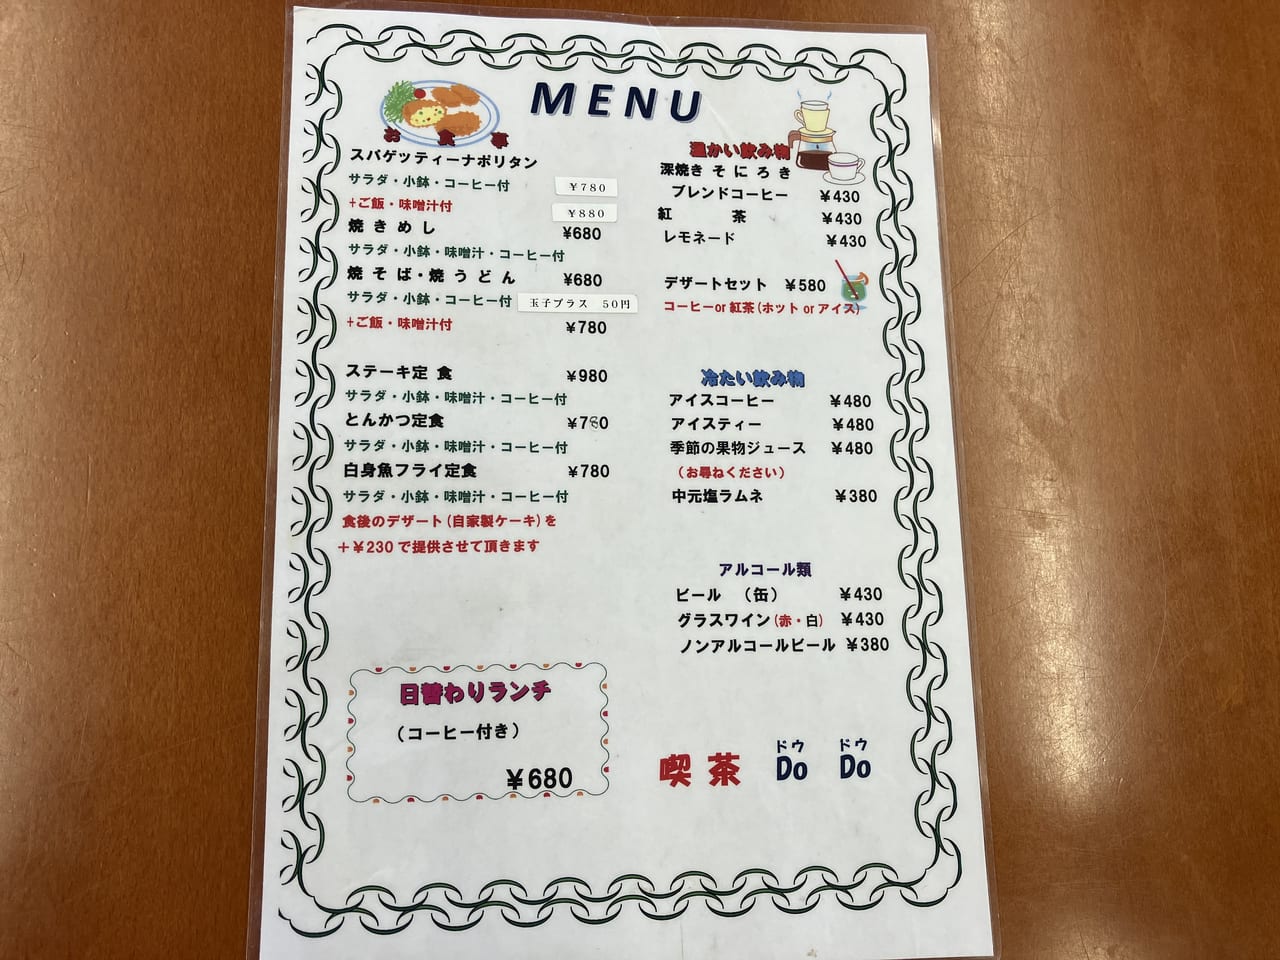 MENU
お食事
スパゲッティーナポリタン
サラダ・小鉢・コーヒー付 ¥780
+ご飯・味噌汁付 ¥880
焼きめし ¥680
サラダ・小鉢・味噌汁・コーヒー付
焼そば・焼うどん ¥680
サラダ・小鉢・コーヒー付 玉子プラス 50円
+ご飯・味噌汁付 ¥780
ステーキ定食 ¥980
サラダ・小鉢・味噌汁・コーヒー付
とんかつ定食 ¥780
サラダ・小鉢・味噌汁・コーヒー付
白身魚フライ定食 ¥780
サラダ・小鉢・味噌汁・コーヒー付
食後のデザート(自家製ケーキ)を
+¥230で提供させて頂きます
日替わりランチ
(コーヒー付き)
¥680
温かい飲み物
深焼きそにろき
ブレンドコーヒー ¥430
紅茶 ¥430
レモネード ¥430
デザートセット ¥580
コーヒーor紅茶(ホットorアイス)
冷たい飲み物
アイスコーヒー ¥480
アイスティー ¥480
季節の果物ジュース ¥480
(お尋ねください)
中元塩ラムネ ¥380
アルコール類
ビール (缶) ¥430
グラスワイン(赤・白) ¥430
ノンアルコールビール ¥380
ドゥ ドゥ
喫茶 Do Do